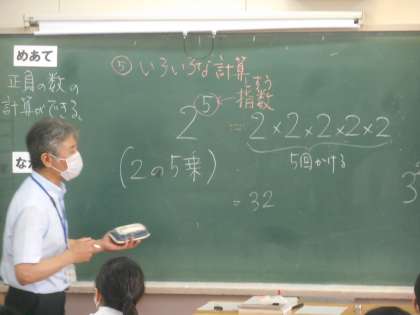 めあて
正負の数の
計算ができる。
な
⑤ いろいろな計算
しすう
指数
2⁵ = 2×2×2×2×2
5回かける
(2の5乗)
= 32
3